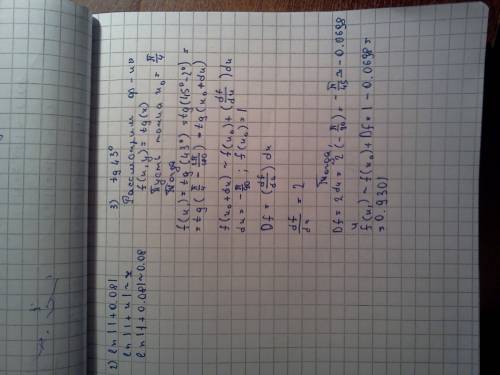 2) ln |1+0.08|
ln |1+x| ~ x
ln |1+0.08| ~ 0.08
3) tg 43°
Рассмотрим ф-ию
f(x,y) = tg(x)
Пусть точка u₀ = π/4
Тогда
f(u₁) = tg(43°) = tg(45°-2°) =
= tg(π/4 - 2π/180) = tg(u₀+du)
f(u₀+du) ~ f(u₀) + (df/du) du
du = -π/90 ; f(u₀) = 1
Df = (df/du) du
df/du = 2
Тогда
Df = 2du = 2(-π/90) = -π/45 ≈ -0.0698
и
f(u₁) ~ f(u₀) + Df = 1 - 0.0698 =
= 0.9301